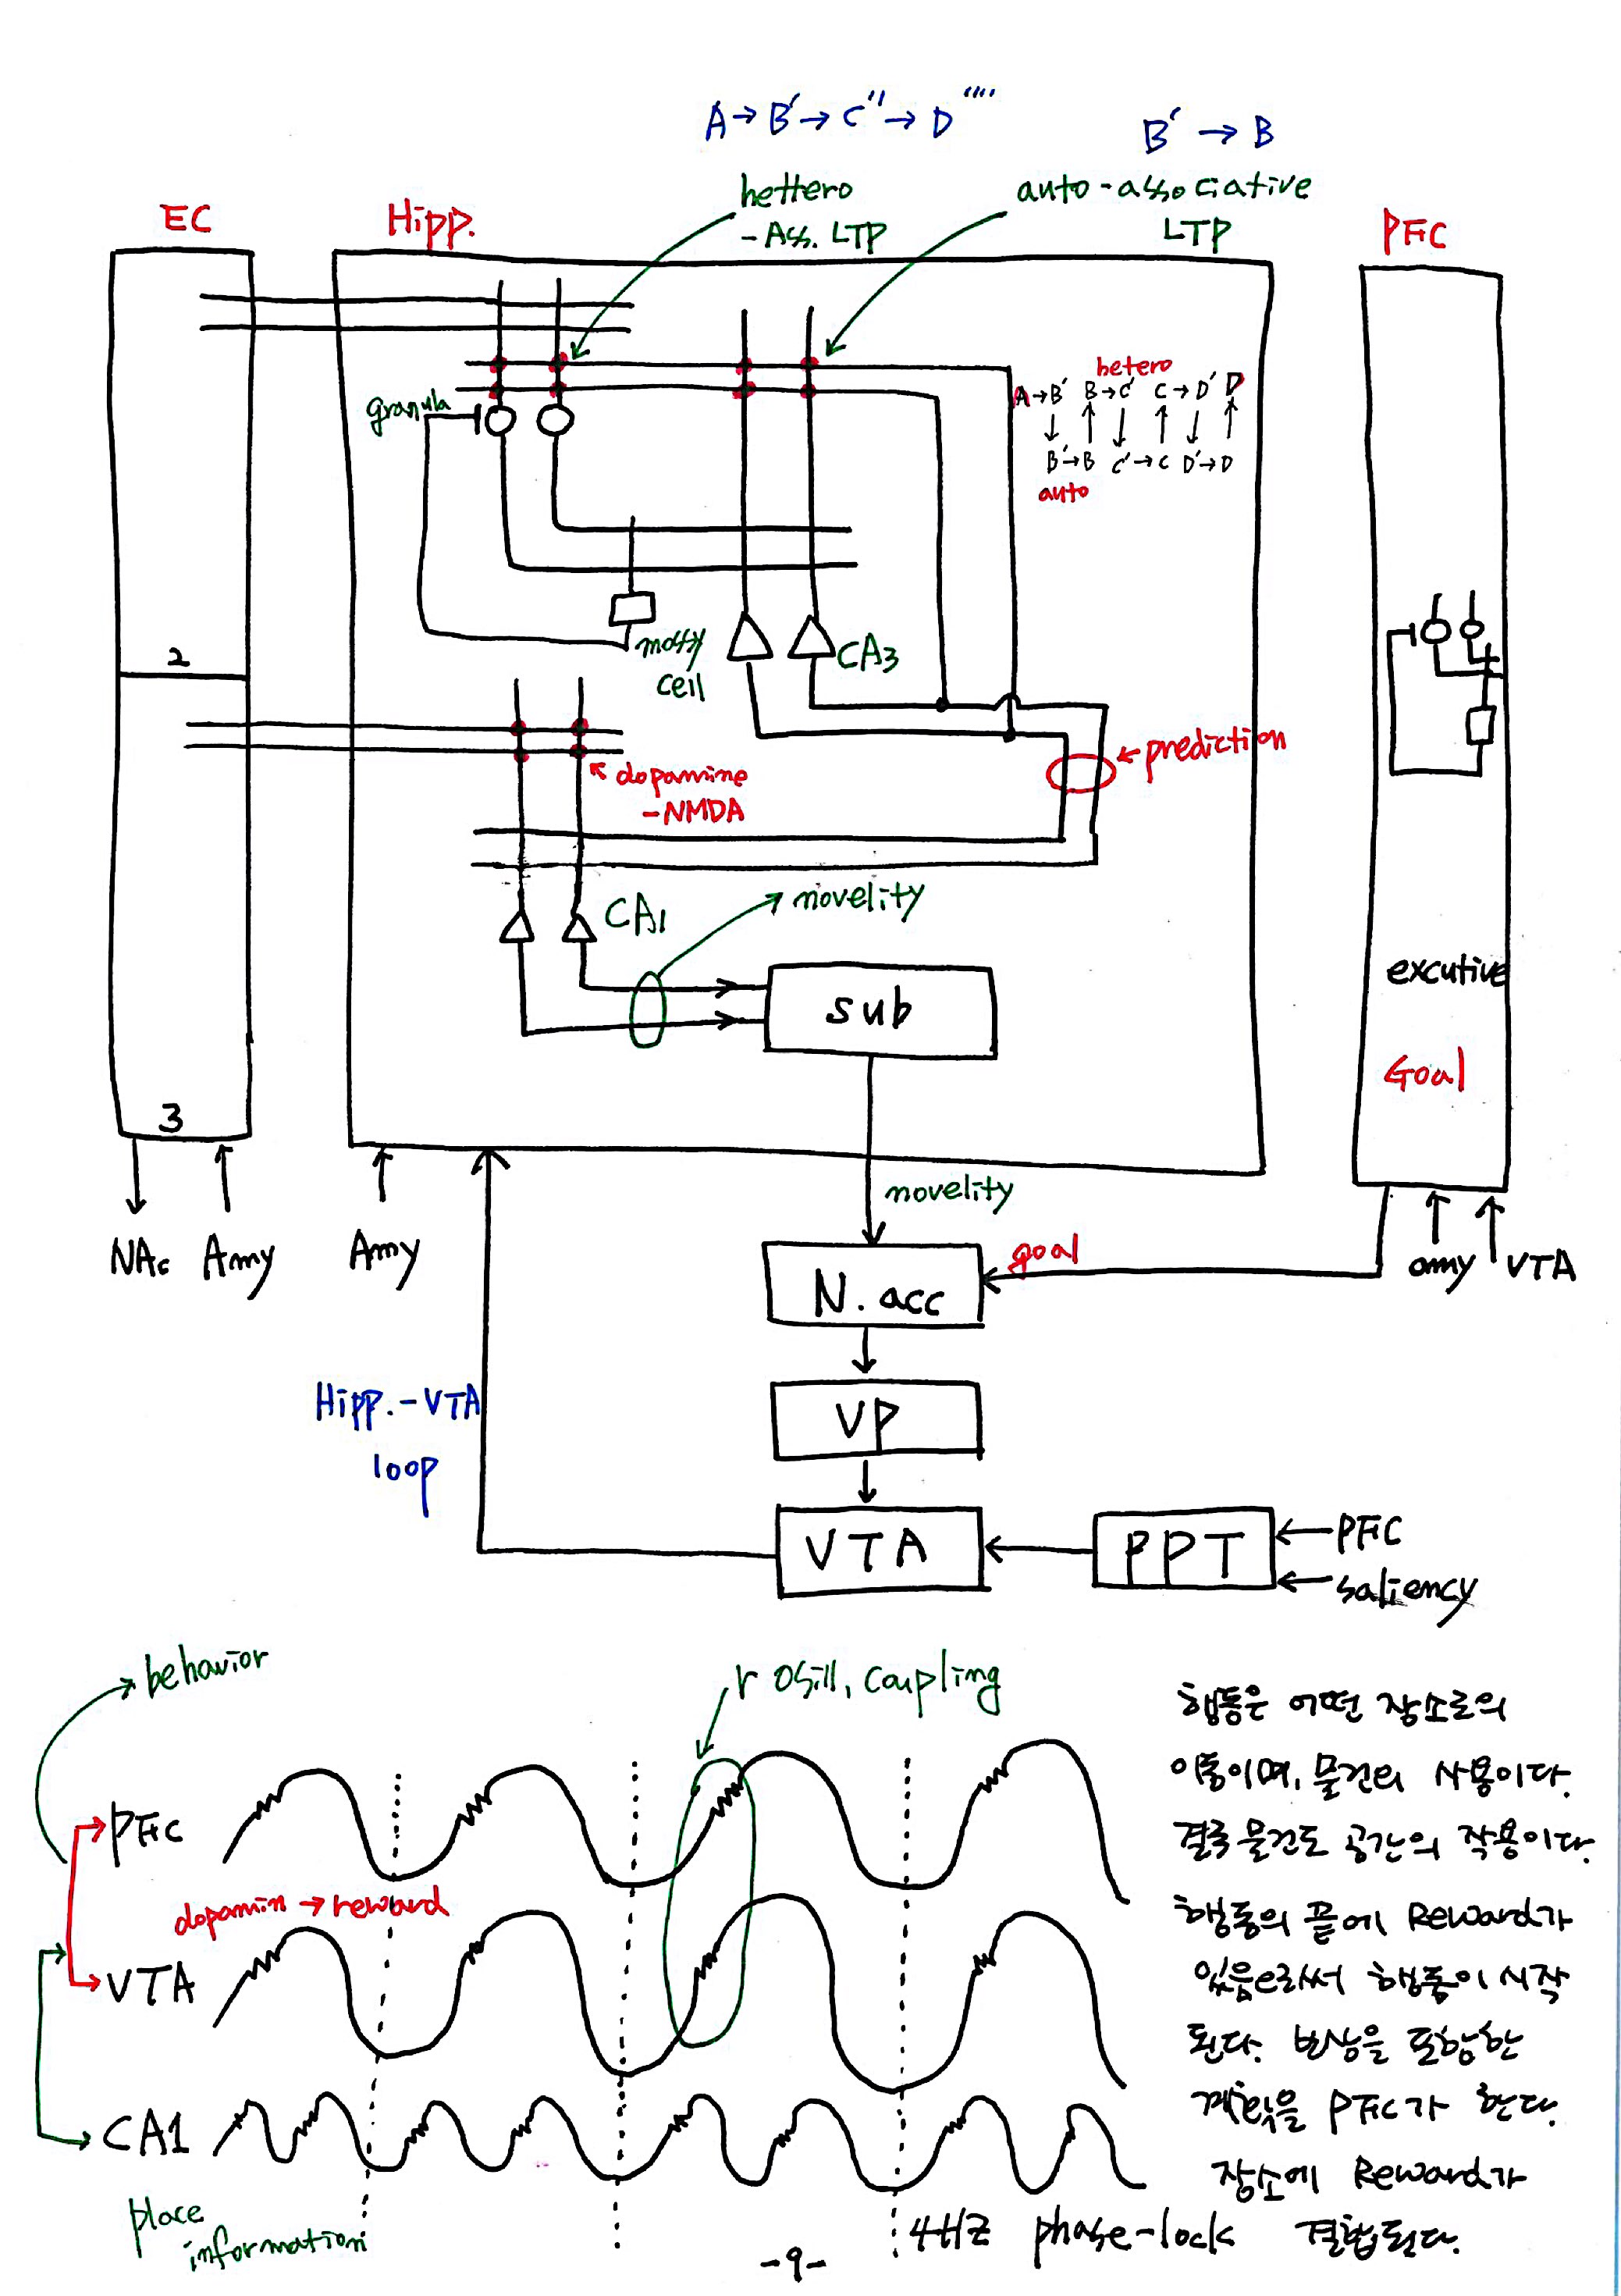 A→B′→C″→D⁗
B′→B
hettero
-Ass. LTP
auto-associative
LTP
EC
Hipp.
PFC
hetero
A→B′ B→C′ C→D′ D
B′→B C′→C D′→D
auto
granula
mossy
cell
CA3
2
prediction
dopamine
-NMDA
novelity
CA1
sub
excutive
Goal
3
novelity
NAc
Amy
Amy
goal
N.acc
amy
VTA
Hipp.-VTA
loop
VP
VTA
PPT
PFC
saliency
behavior
r osill, coupling
PFC
dopamin → reward
VTA
CA1
place
information
4HZ phase-lock
행동은 어떤 장소로의
이동이며, 물건의 사용이다.
결국 물건도 공간의 작용이다.
행동의 끝에 Reward가
있음으로써 행동이 시작
된다. 보상을 포함한
계획을 PFC가 한다.
장소에 Reward가
결합된다.
-9-